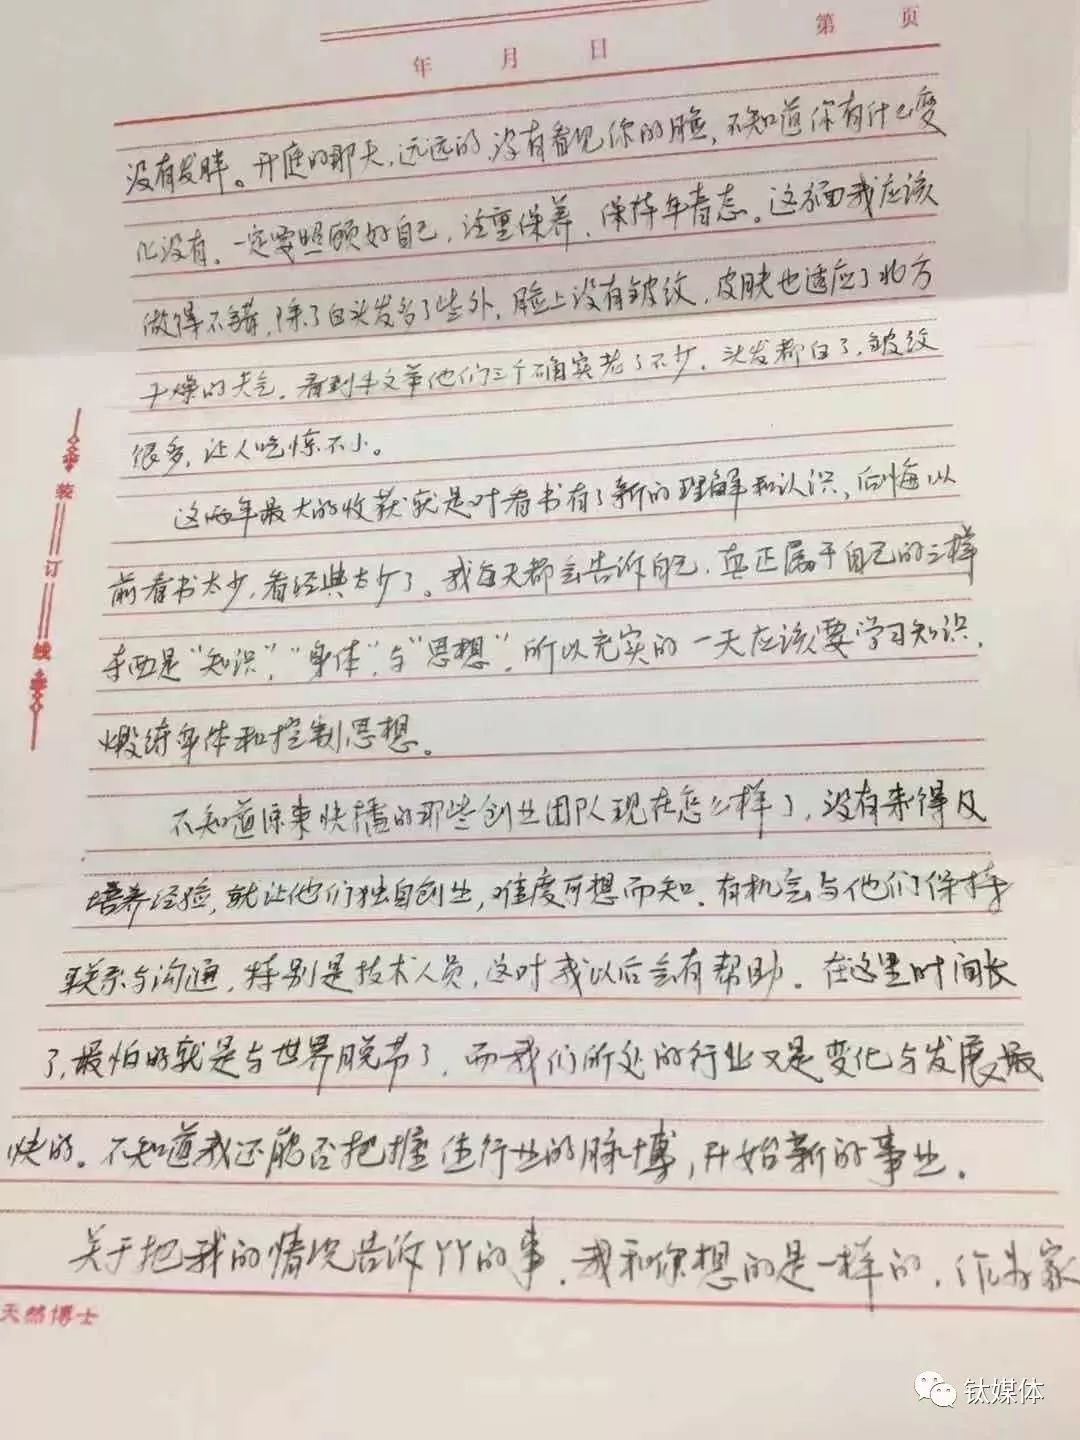 第 页
年 月 日
没有发胖。开庭的那天,远远的,没有看见你的脸,不知道你有什么变
化没有。一定要照顾好自己,注重保养,保持年青态。这方面我应该
做得不错,除了白头发多了些外,脸上没有皱纹,皮肤也适应了北方
干燥的天气。看到牛文举他们三个确实老了不少,头发都白了,皱纹
很多,让人吃惊不小。
这两年最大的收获就是对看书有了新的理解和认识,后悔以
前看书太少,看经典太少了。我每天都会告诉自己,真正属于自己的三样
东西是“知识”,“身体”,与“思想”,所以充实的一天应该要学习知识,
煅练身体和控制思想。
不知道原来快播的那些创业团队现在怎么样了,没有来得及
培养经验,就让他们独自创业,难度可想而知。有机会与他们保持
联系与沟通,特别是技术人员,这对我以后会有帮助。在这里时间长
了,最怕的就是与世界脱节了,而我们所处的行业又是变化与发展最
快的。不知道我还能否把握住行业的脉博,开始新的事业。
关于把我的情况告诉丫丫的事,我和你想的是一样的,作为家
装
订
线
天然博士
钛媒体